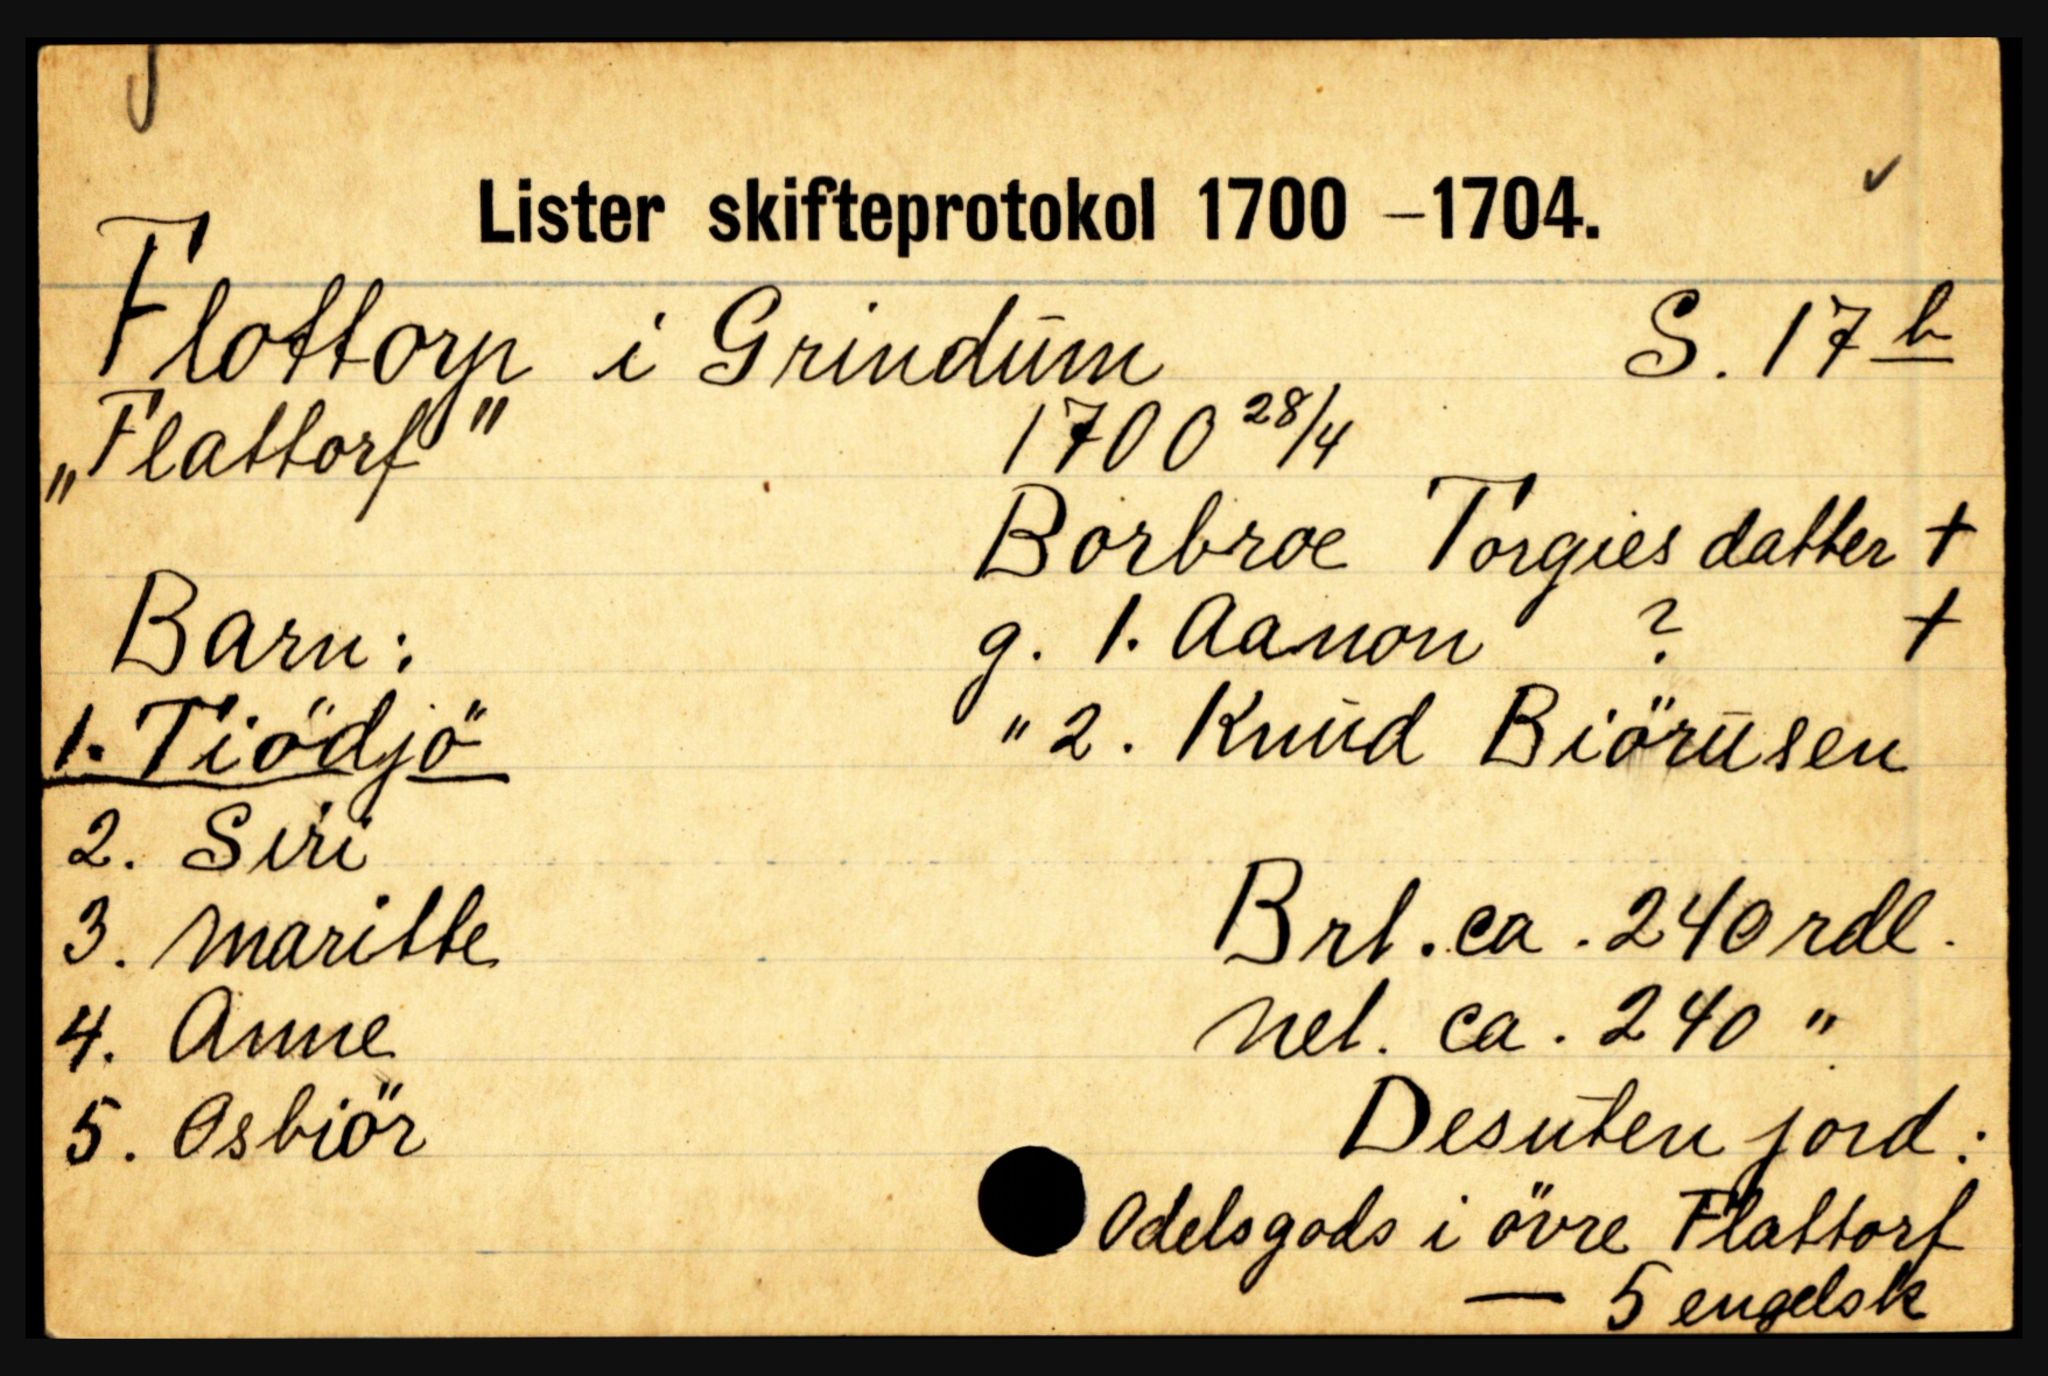 Lister skifteprotokol 1700 – 1704.
Flottorp i Grindum S. 17 b
„Flattorf" 1700 28/4
Borbroe Torgiesdatter +
Barn: g. 1. Aanon ? +
1. Tiödjö " 2. Knud Biörusen
2. Siri
3. Maritte Brt. ca. 240 rdl.
4. Anne Net. ca. 240 "
5. Osbiör Desuten jord:
Odelsgods i övre Flattorf
— 5 engelsk